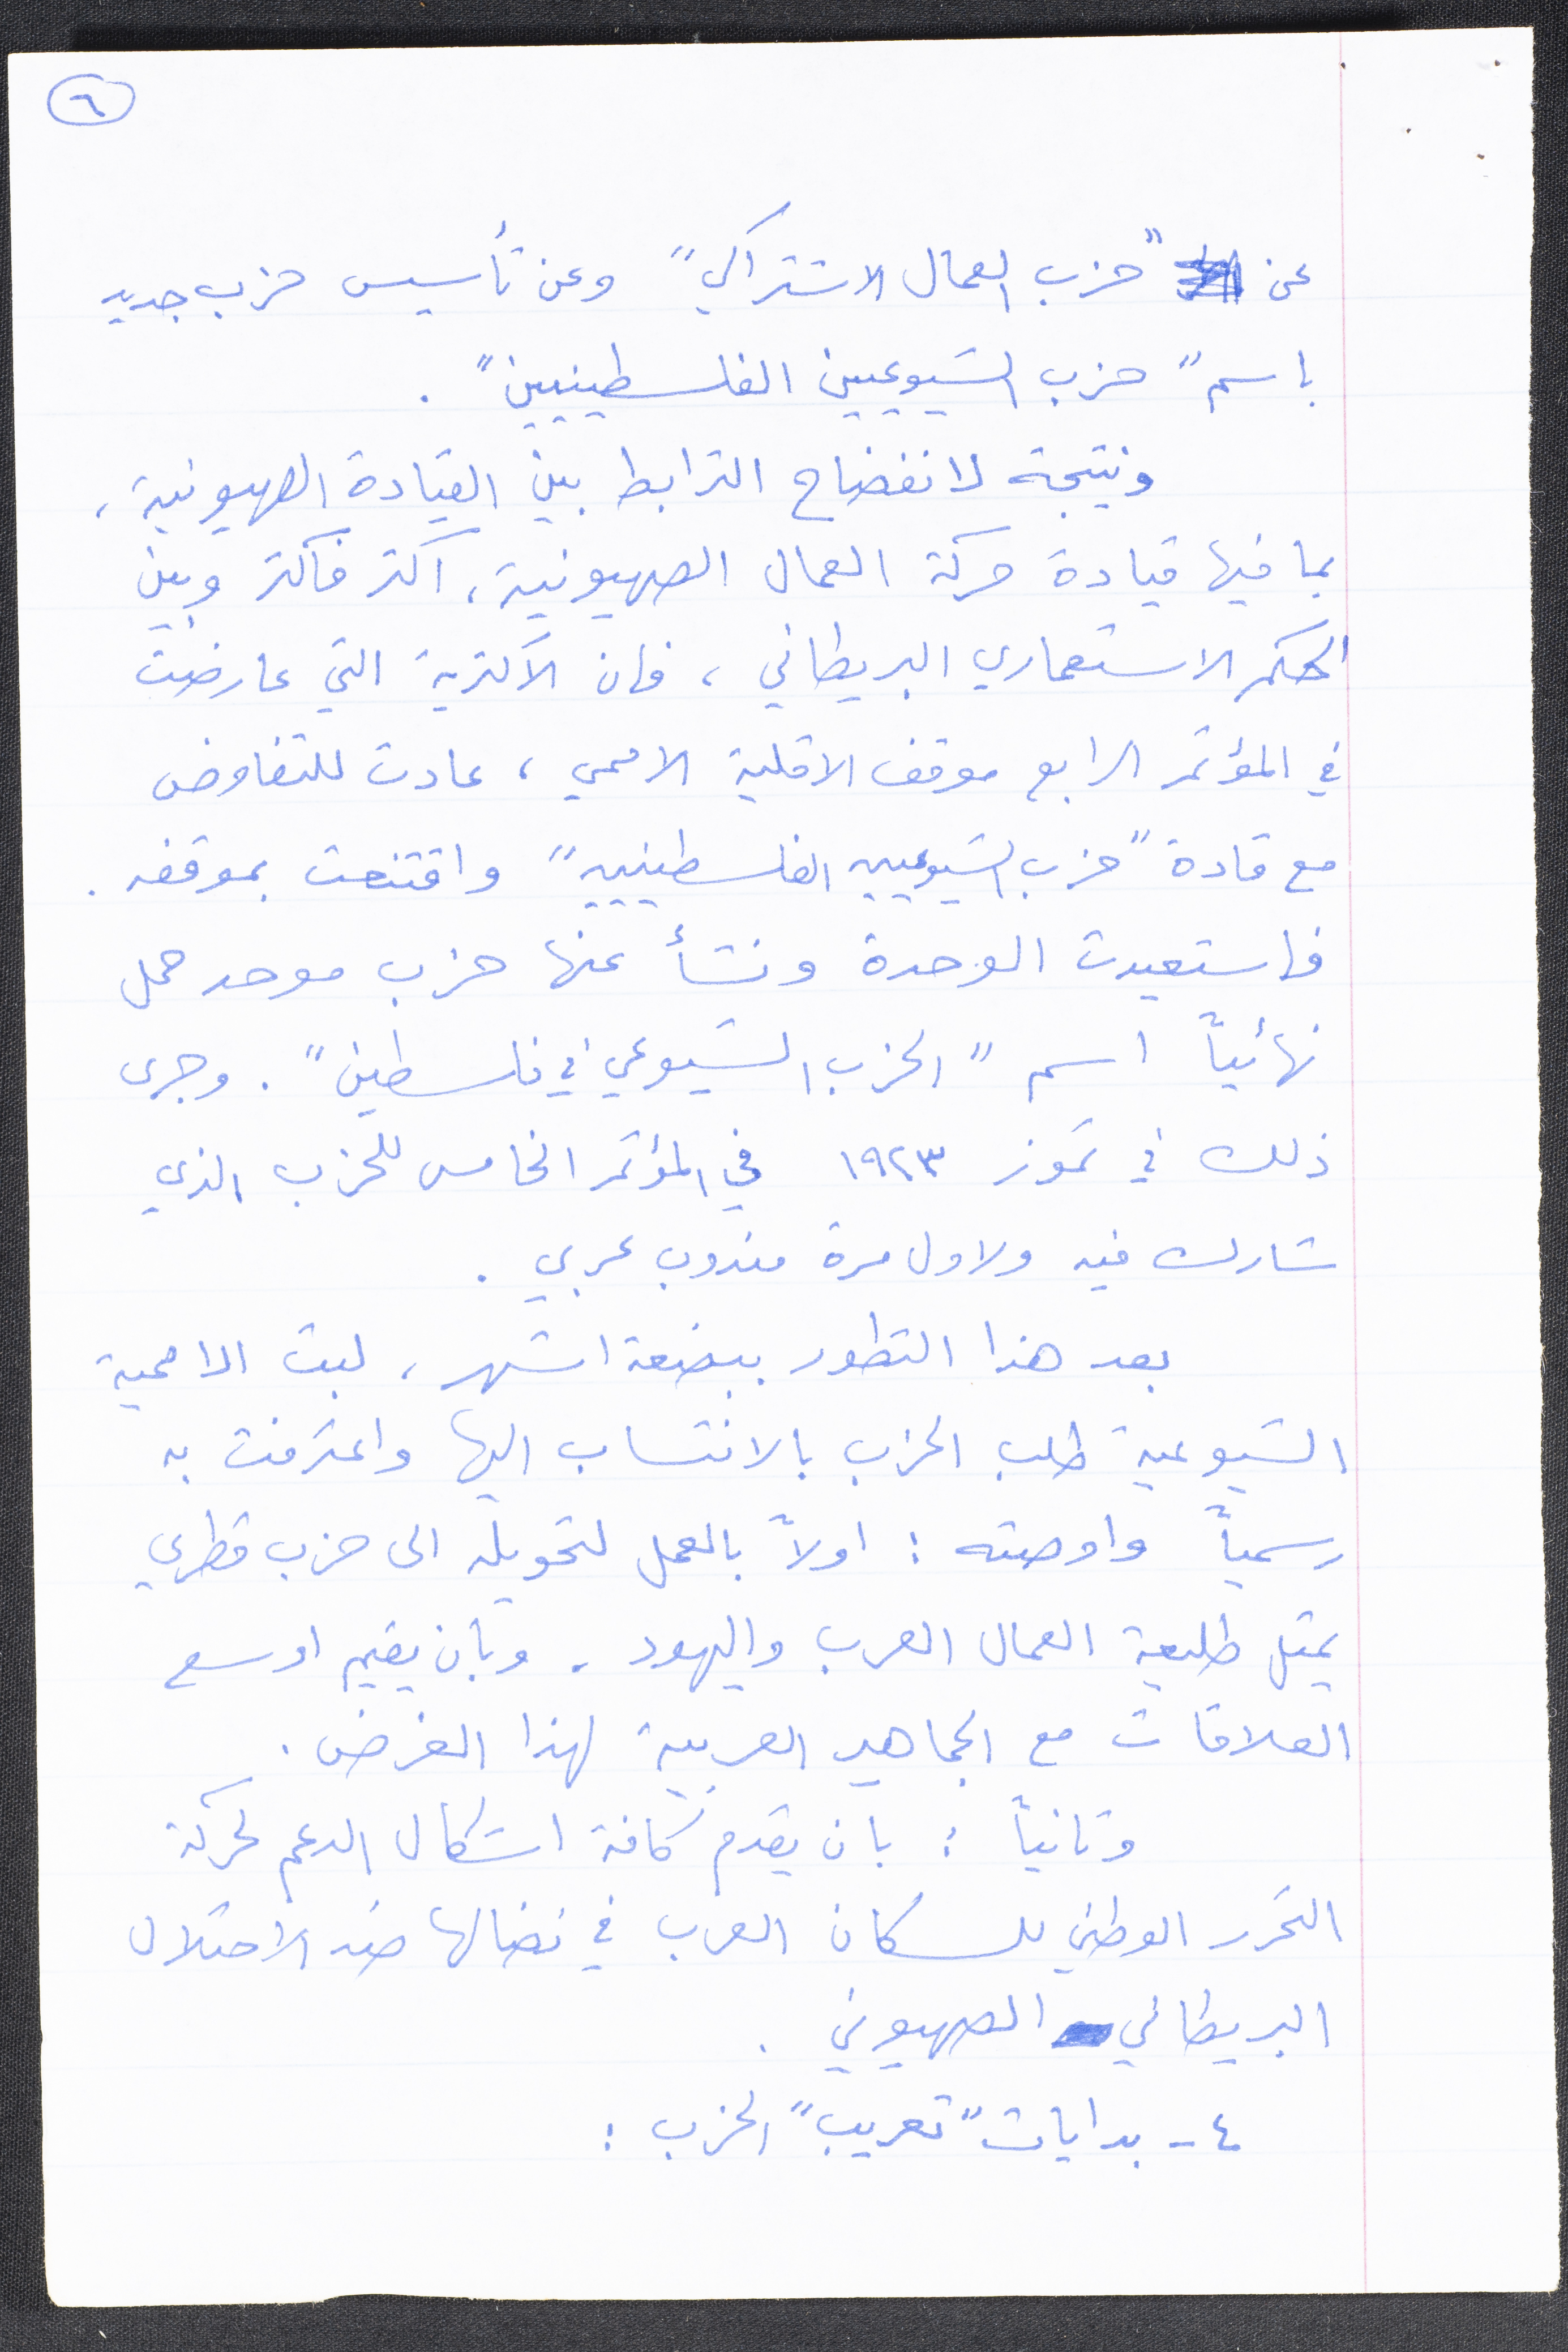 ٦
عن "حزب العمال الاشتراكي" وعن تأسيس حزب جديد
باسم "حزب الشيوعيين الفلسطينيين".
ونتيجة لانفضاح الترابط بين القيادة الصهيونية،
بما فيها قيادة حركة العمال الصهيونية، اكثر فاكثر وبين
الحكم الاستعماري البريطاني، فان الاكثرية التي عارضت
في المؤتمر الرابع موقف الاقلية الاممي، عادت للتفاوض
مع قادة "حزب الشيوعيين الفلسطينيين" واقتنعت بموقفه.
فاستعيدت الوحدة ونشأ عنها حزب موحد حمل
نهائياً اسم "الحزب الشيوعي في فلسطين". وجرى
ذلك في تموز ١٩٢٣ في المؤتمر الخامس للحزب الذي
شارك فيه ولاول مرة مندوب عربي.
بعد هذا التطور ببضعة اشهر، لبت الاممية
الشيوعية طلب الحزب بالانتساب اليها واعترفت به
رسمياً واوصته: اولاً بالعمل لتحويله الى حزب قطري
يمثل طليعة العمال العرب واليهود. وبان يقيم اوسع
العلاقات مع الجماهير العربية لهذا الغرض.
وثانياً: بان يقدم كافة اشكال الدعم لحركة
التحرر الوطني للسكان العرب في نضالها ضد الاحتلال
البريطاني الصهيوني.
٤- بدايات "تعريب" الحزب: